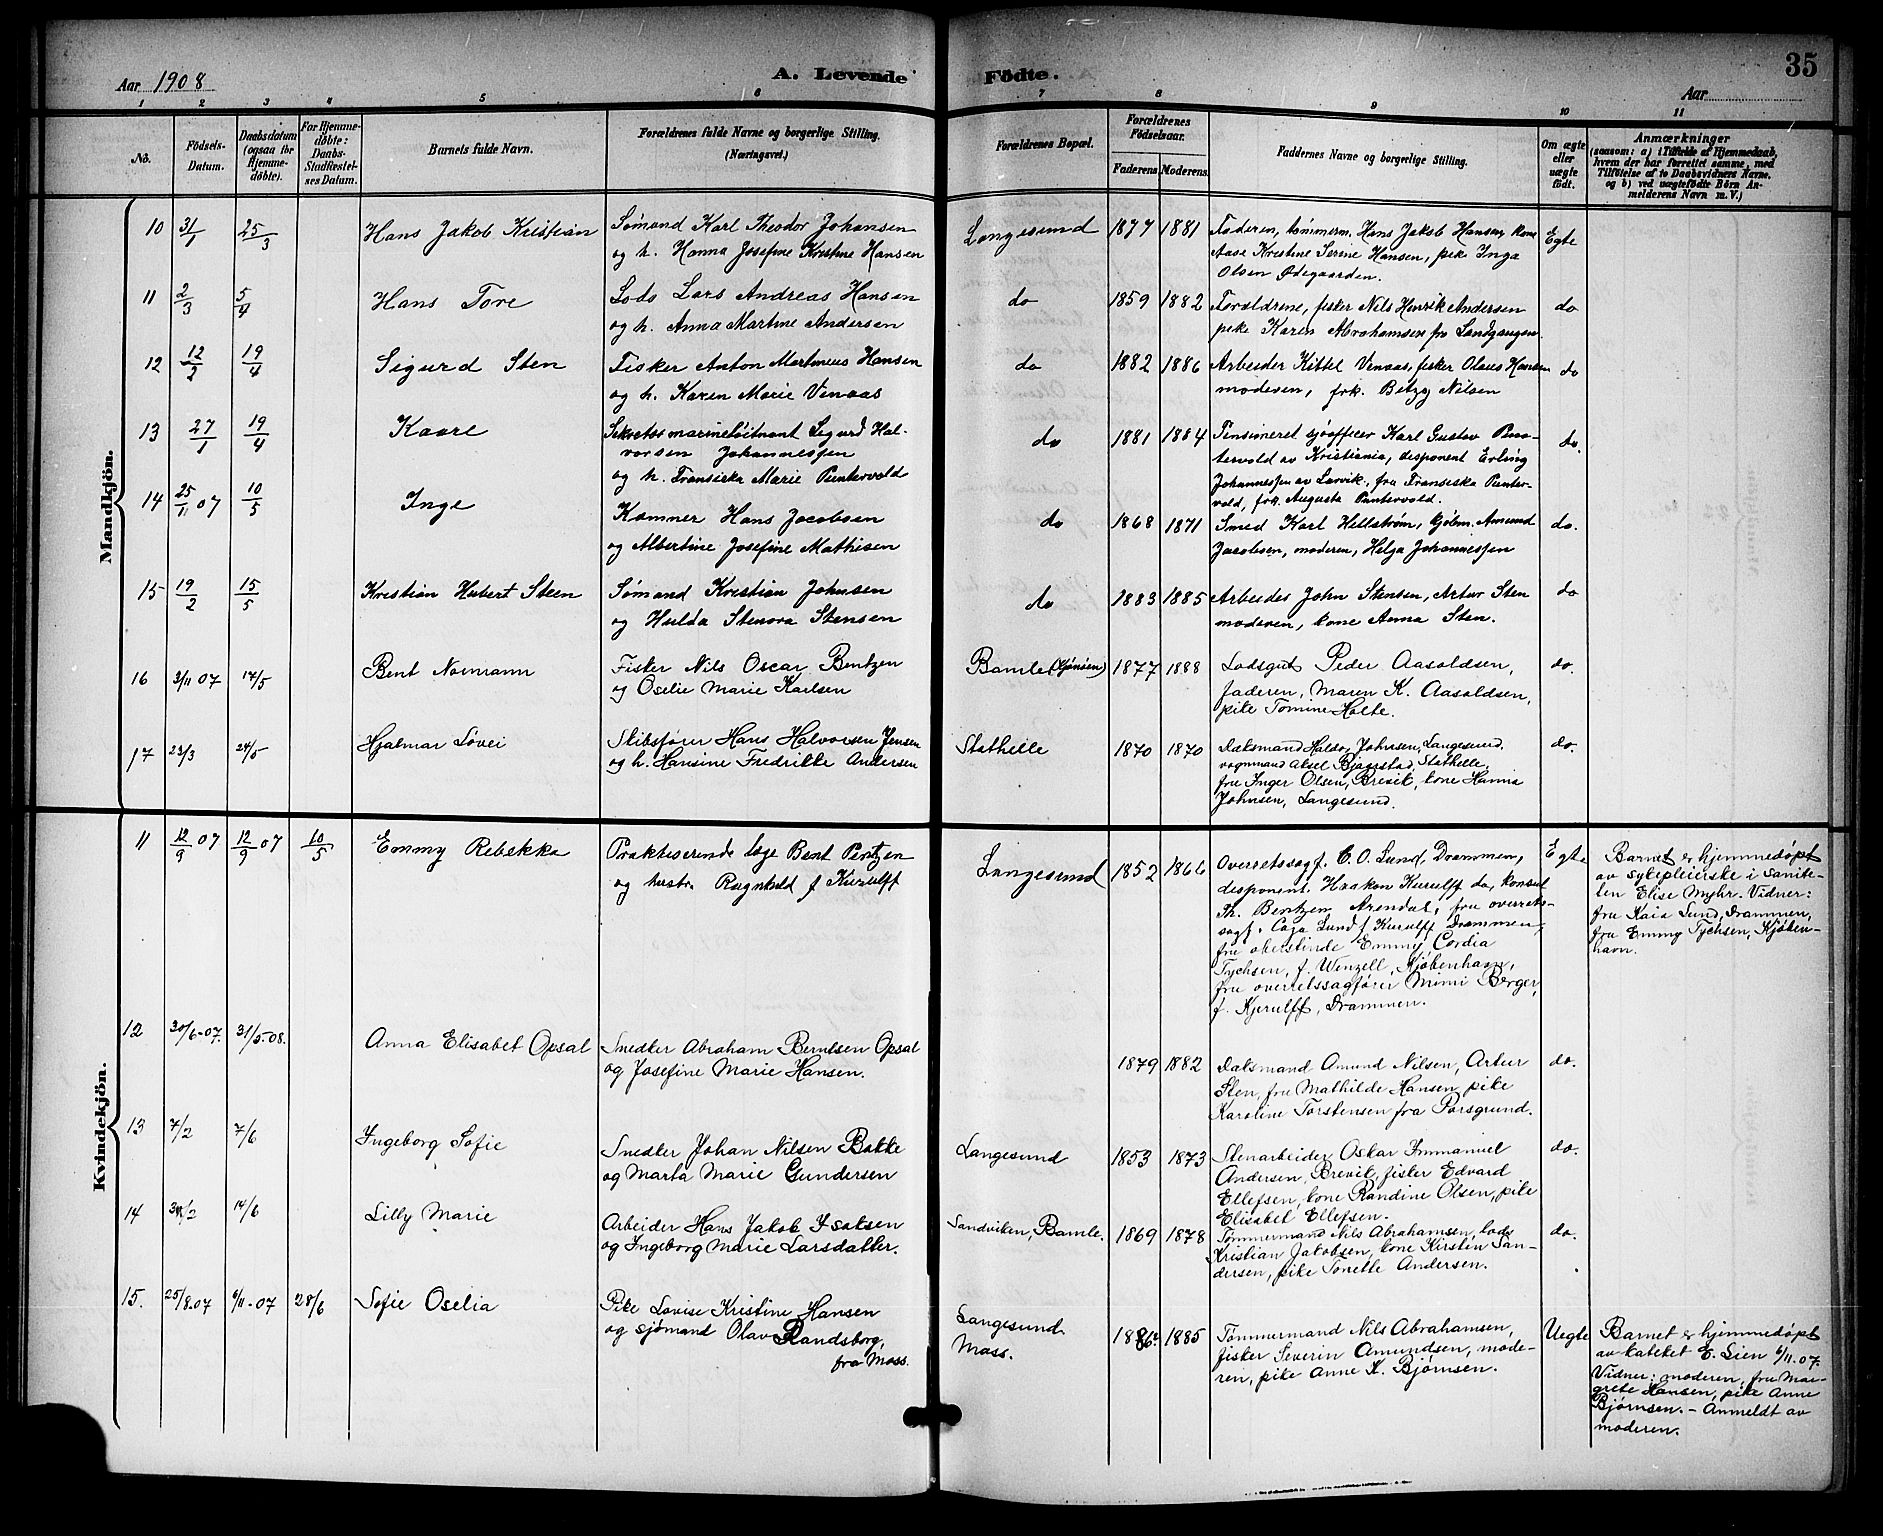 35
Aar 1908 A. Levende Fødte. Aar
1 2 3 4 5 6 7 8 9 10 11
No.
Födsels-
Datum.
Daabsdatum
(ogsaa for
Hjemme-
döbte).
For Hjemme-
döbte:
Daabs-
Stadfæstel-
ses Datum.
Barnets fulde Navn.
Forældrenes fulde Navne og borgerlige Stilling.
(Næringsvei.)
Forældrenes Bopæl.
Forældrenes
Födselsaar.
Faderens Moderens
Faddernes Navne og borgerlige Stilling.
Om ægte
eller
uægte
født.
Anmærkninger
(saasom: a) i Tilfælde af Hjemmedaab,
hvem der har forrettet samme, med
Tilföielse af to Daabsvidners Navne,
og b) ved uægtefödte Börn An-
melderens Navn m. V.)
Mandkjön.
10 31/1 25/3 Hans Jakob Kristian
Sømand Karl Theodor Johansen
og h. Hanna Josefine Kristine Hansen
Langesund 1877 1881
Faderen, tømmerm. Hans Jakob Hansen, kone
Aase Kristine Serine Hansen, pike Inga
Olsen Ødegaarden.
Egte
11 2/3 5/4 Hans Tore
Lods Lars Andreas Hansen
og h. Anna Martine Andersen
do 1859 1882
Forældrene, fisker Nils Henrik Andersen
pike Karen Abrahamsen fra Landgangen
do
12 12/2 19/4 Sigurd Sten
Fisker Anton Martinius Hansen
og h. Karen Marie Vinaas
do 1882 1886
Arbeider Kittel Vinaas, fisker Olaus Hansen
moderen, frk. Betzy Nilsen
do
13 27/1 19/4 Kaare
marineløitnant Sigurd Hal-
vorsen Johannessen
og h. Fransiska Marie Puntervold
do 1881 1884
Pensioneret sjøofficer Karl Gustav Pun-
tervold av Kristiania, disponent Erling
Johannessen av Larvik, fru Fransiska Punter-
vold, frk. Augusta Puntervold.
do.
14 25/11 07 10/5 Inge
Kæmner Hans Jacobsen
og Albertine Josefine Mathisen
do 1868 1871
Smed Karl Hellstrøm, kjøbm. Amund
Jacobsen, moderen, Helga Johannessen
do.
15 19/2 15/5 Kristian Hubert Steen
Sømand Kristian Johnsen
og Hulda Stenora Stensen
do 1883 1885
Arbeider John Stensen, Artur Sten
moderen, kone Anna Sten.
do
16 3/11 07 17/5 Bent Normann
Fisker Nils Oscar Bentzen
og Oselie Marie Karlsen
Bamle 1877 1888
Lodsgut Peder Aasoldsen,
faderen, Maren K. Aasoldsen,
pike Tomine Halte.
do.
17 23/3 24/5 Hjalmar Løvei
Skibsfører Hans Halvorsen Jensen
og h. Hansine Fredrikke Andersen
Stathelle 1870 1870
Dæksmand Haldo. Johnsen, Langesund.
vognmand Aksel Bjaerstad, Stathelle,
fru Inger Olsen, Brevik, kone Hanna
Johnsen, Langesund.
do.
Kvindekjön.
11 12/9 07 12/9 07 10/5 Emmy Rebekka
Praktiserende læge Bent Bentzen
og hustr. Ragnhild f Kierulff
Langesund 1852 1866
Overretssagf. C. O. Lund, Drammen,
disponent. Haakon Kierulff do, konsul
Th. Bentzen Arendal, fru overrets-
sagf. Caja Lund f Kierulff Drammen,
fru oberstinde Emmy Cordia
Tychsen, f. Wenzell, Kjøbenhavn,
fru overretssagfører Mimi Berger
f. Kjerulff, Drammen.
Egte
Barnet er hjemmedøpt
av sykepleierske i sanite-
ten Elise Myhr. Vidner:
fru Kaia Lund, Drammen,
fru Emmy Tychsen, Kjøben-
havn.
12 30/6-07. 31/5-08. Anna Elisabet Opsal
Snedker Abraham Berntsen Opsal
og Josefine Marie Hansen.
1879 1882
Dæksmand Amund Nilsen, Artur
Sten, fru Mathilde Hansen, pike
Karoline Torstensen fra Porsgrund.
do.
13 7/2 7/6 Ingeborg Sofie
Snedker Johan Nilsen Bakke
og Marta Marie Gundersen
Langesund 1853 1873
Stenarbeider Oskar Immanuel
Andersen, Brevik, fisker Edvard
Ellefsen, kone Randine Olsen, pike
Elisabet Ellefsen.
do.
14 14/6 Lilly Marie
Arbeider Hans Jakob Isaksen
og Ingeborg Marie Larsdatter.
Sandviken, Bamle. 1869 1878
Tømmermand Nils Abrahamsen, lods
Kristian Jakobsen, kone Kirsten San-
dersen, pike Tonette Andersen.
do.
15. 25/8.07 6/11-07 28/6 Sofie Oselia
Pike Lovise Kristine Hansen
og sjømand Olav Randsborg,
fra Moss.
Langesund
Moss.
1886 1885
Tømmermand Nils Abrahamsen,
fisker Severin Amundsen, mode-
ren, pike Anne K. Bjørnsen.
Uegte
Barnet er hjemmedøpt
av kateket E. Lien 6/11.07.
Vidner: moderen, fru Mar-
grete Hansen, pike Anne
Bjørnsen. - Anmeldt av
moderen.